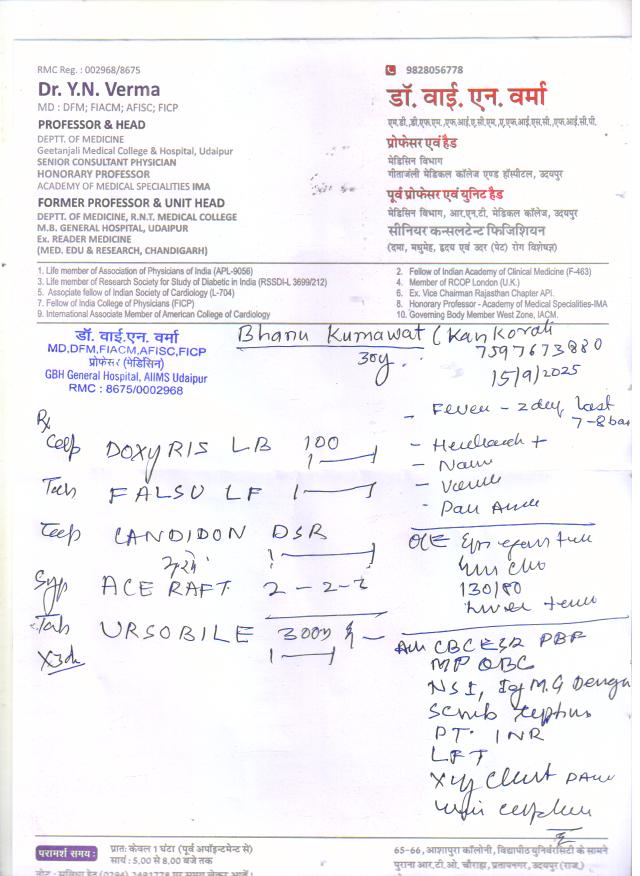 RMC Reg. : 002968/8675
Dr. Y.N. Verma
MD : DFM; FIACM; AFISC; FICP
PROFESSOR & HEAD
DEPTT. OF MEDICINE
Geetanjali Medical College & Hospital, Udaipur
SENIOR CONSULTANT PHYSICIAN
HONORARY PROFESSOR
ACADEMY OF MEDICAL SPECIALITIES IMA
FORMER PROFESSOR & UNIT HEAD
DEPTT. OF MEDICINE, R.N.T. MEDICAL COLLEGE
M.B. GENERAL HOSPITAL, UDAIPUR
Ex. READER MEDICINE
(MED. EDU & RESEARCH, CHANDIGARH)
9828056778
डॉ. वाई. एन. वर्मा
एम.डी.,डी.एफ.एम.,एफ.आई.ए.सी.एम.,ए.एफ.आई.एस.सी.,एफ.आई.सी.पी.
प्रोफेसर एवं हैड
मेडिसिन विभाग
गीतांजली मेडिकल कॉलेज एण्ड हॉस्पीटल, उदयपुर
पूर्व प्रोफेसर एवं युनिट हैड
मेडिसिन विभाग, आर.एन.टी. मेडिकल कॉलेज, उदयपुर
सीनियर कन्सलटेन्ट फिजिशियन
(दमा, मधुमेह, हृदय एवं उदर (पेट) रोग विशेषज्ञ)
1. Life member of Association of Physicians of India (APL-9056)
3. Life member of Research Society for Study of Diabetic in India (RSSDI-L 3699/212)
5. Associate fellow of Indian Society of Cardiology (L-704)
7. Fellow of India College of Physicians (FICP)
9. International Associate Member of American College of Cardiology
2. Fellow of Indian Academy of Clinical Medicine (F-463)
4. Member of RCOP London (U.K.)
6. Ex. Vice Chairman Rajasthan Chapter API.
8. Honorary Professor - Academy of Medical Specialities-IMA
10. Governing Body Member West Zone, IACM.
डॉ. वाई.एन. वर्मा
MD,DFM,FIACM,AFISC,FICP
प्रोफेसर (मेडिसिन)
GBH General Hospital, AIIMS Udaipur
RMC : 8675/0002968
Bhanu Kumawat (Kankoroli
30y.
7597673880
15/9/2025
Rx
Cap DOXYRIS LB 100
1 — 1
Tab FALSU LF 1 — 1
Cap CANDIDON DSR
1 — 1
Syp ACERAFT 2 - 2 - 2
Tab URSOBILE 300
1 — 1
- Fever - 2 day last
- Headache +
O/E
130/80
CBC ESR PBF
MP QBC
NS1, IgM.G Dengu
Scrub typhus
PT INR
LFT
Xray Chest PA
परामर्श समय :
प्रातः केवल 1 घंटा (पूर्व अपॉइन्टमेन्ट से)
सायं : 5.00 से 8.00 बजे तक
65-66, आशापुरा कॉलोनी, विद्यापीठ युनिवरसिटी के सामने
पुराना आर.टी.ओ. चौराहा, प्रतापनगर, उदयपुर (राज.)